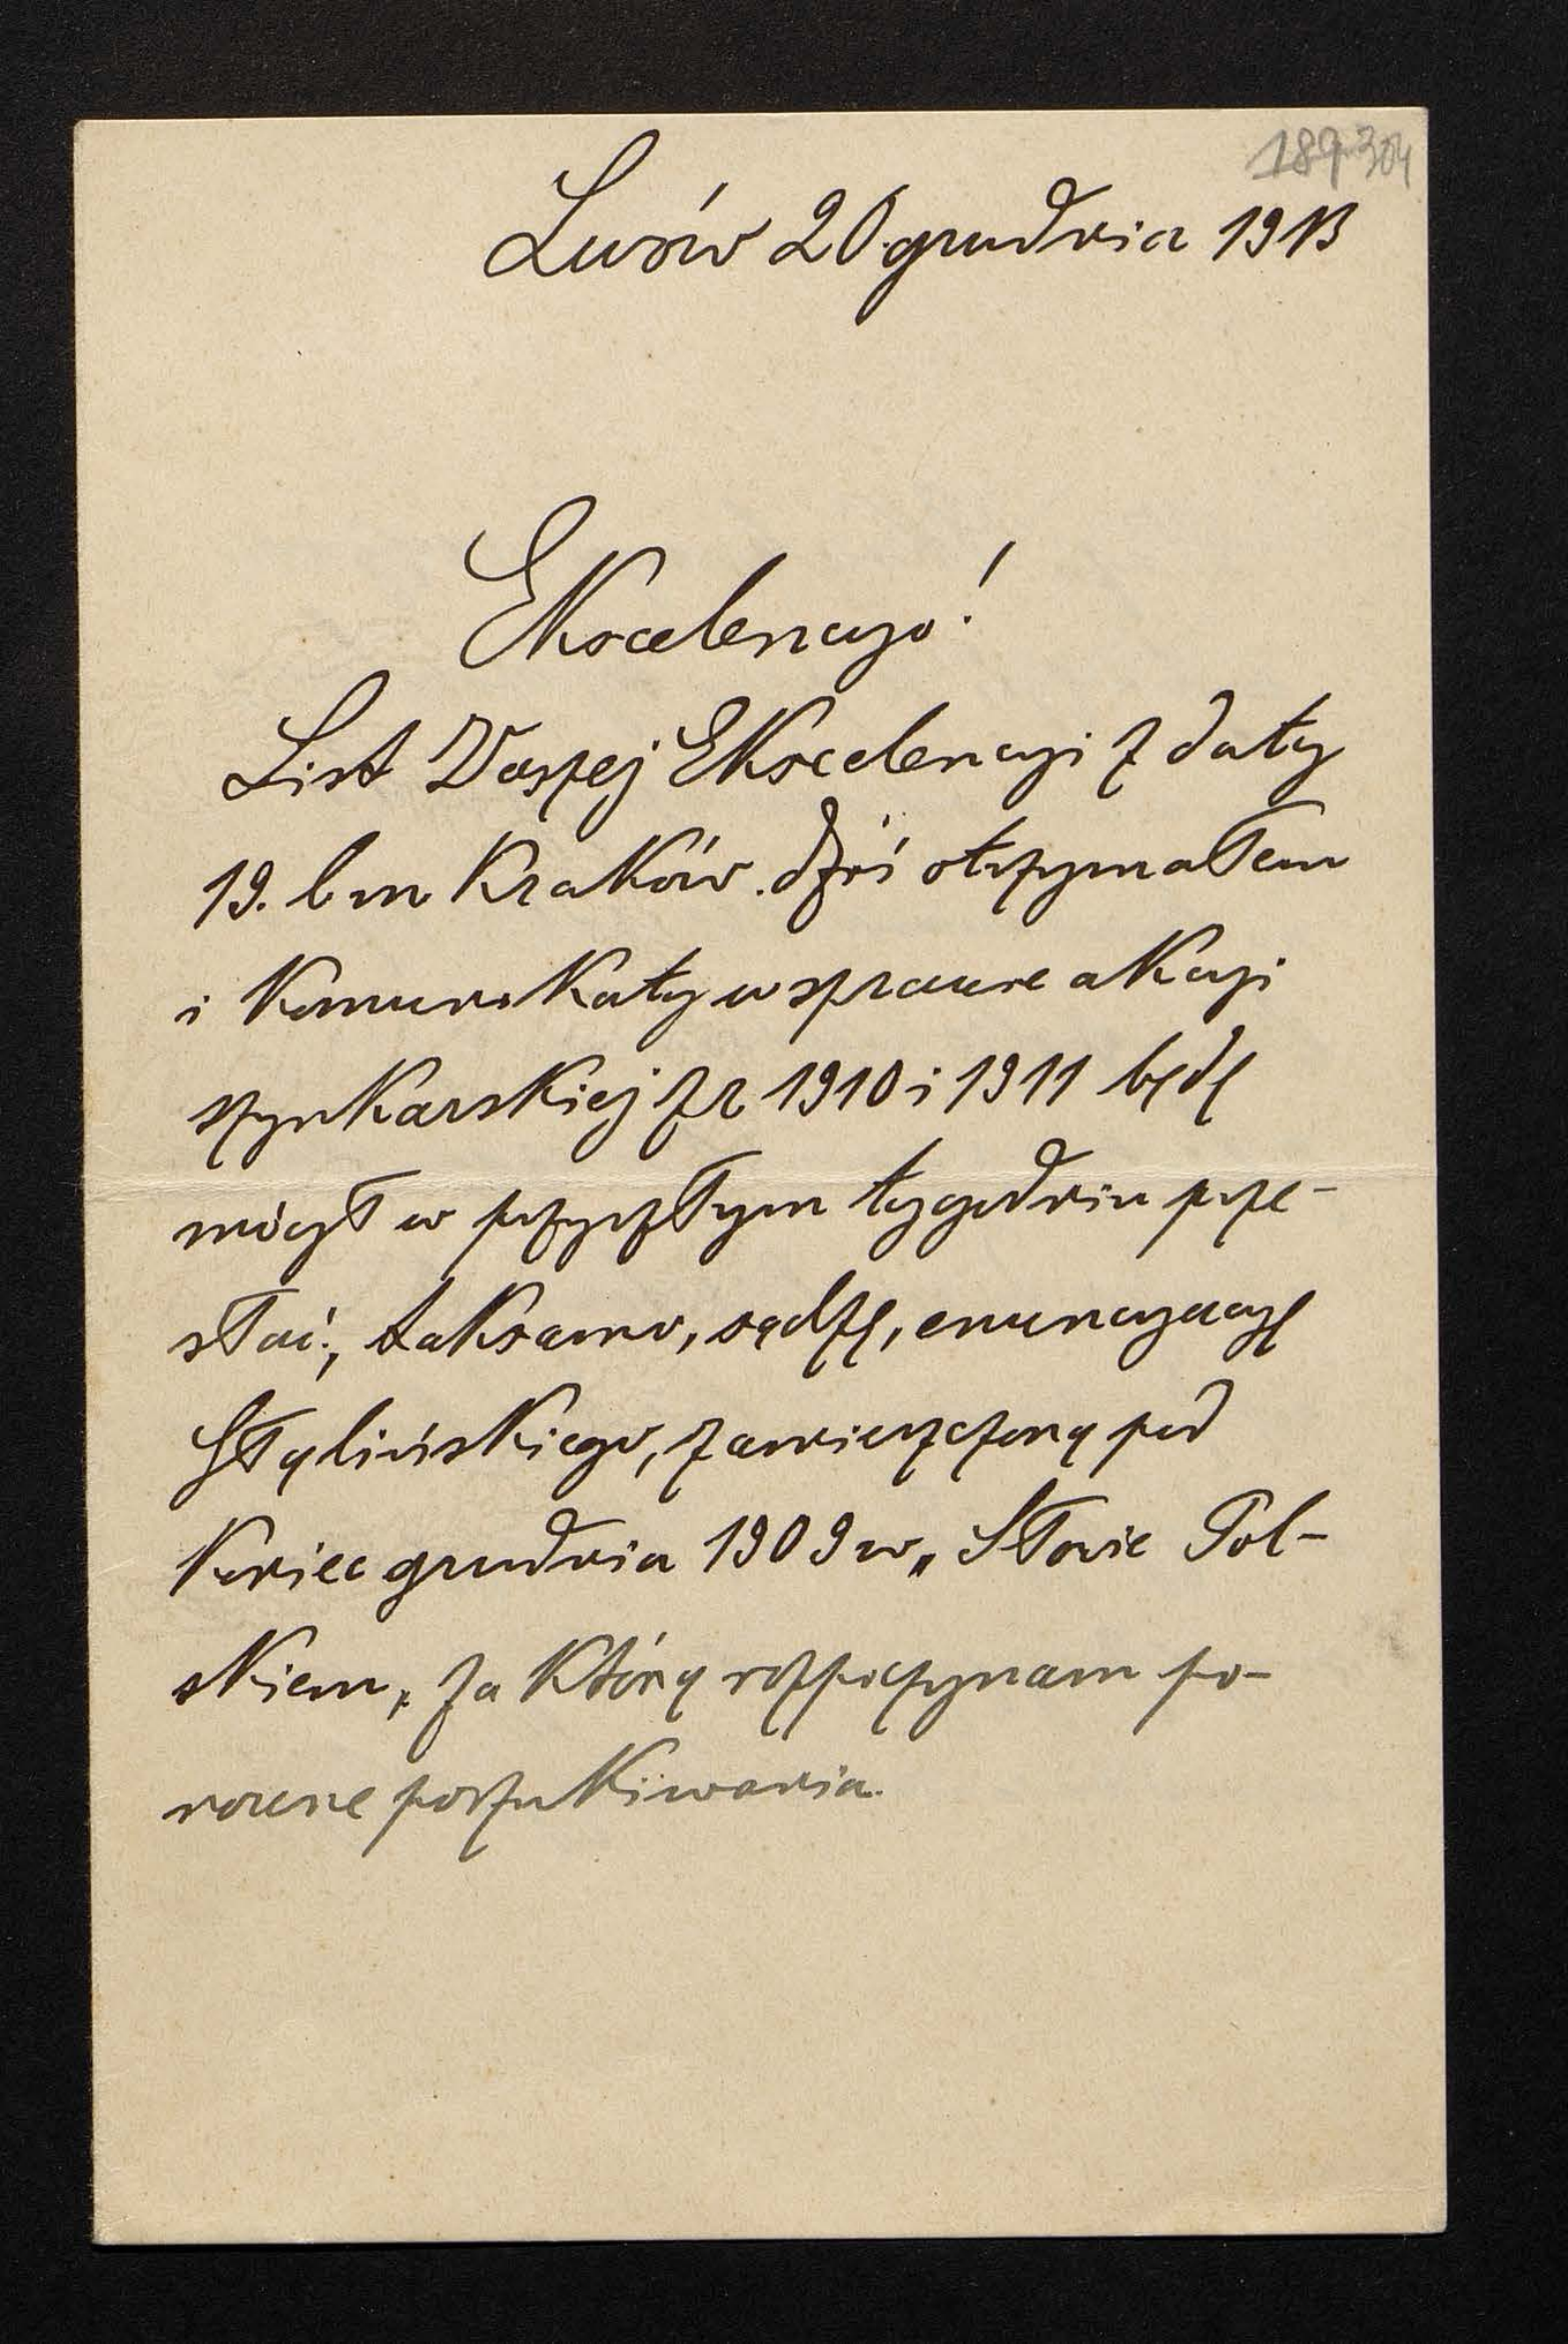 189 304
Lwów 20 grudnia 1913
Ekscelencyo!
List Waszej Ekscelencyi z daty
19. bm Kraków dziś otrzymałem
i komunikaty w sprawie akcyi
szynkarskiej z r 1910 i 1911 będę
mógł w przyszłym tygodniu prze-
słać, taksamo, sądzę, enuncyacyę
Głąbińskiego, zamieszczoną pod
koniec grudnia 1909 w „Słowie Pol-
skiem„ za którą rozpoczynam po-
nowne poszukiwania.